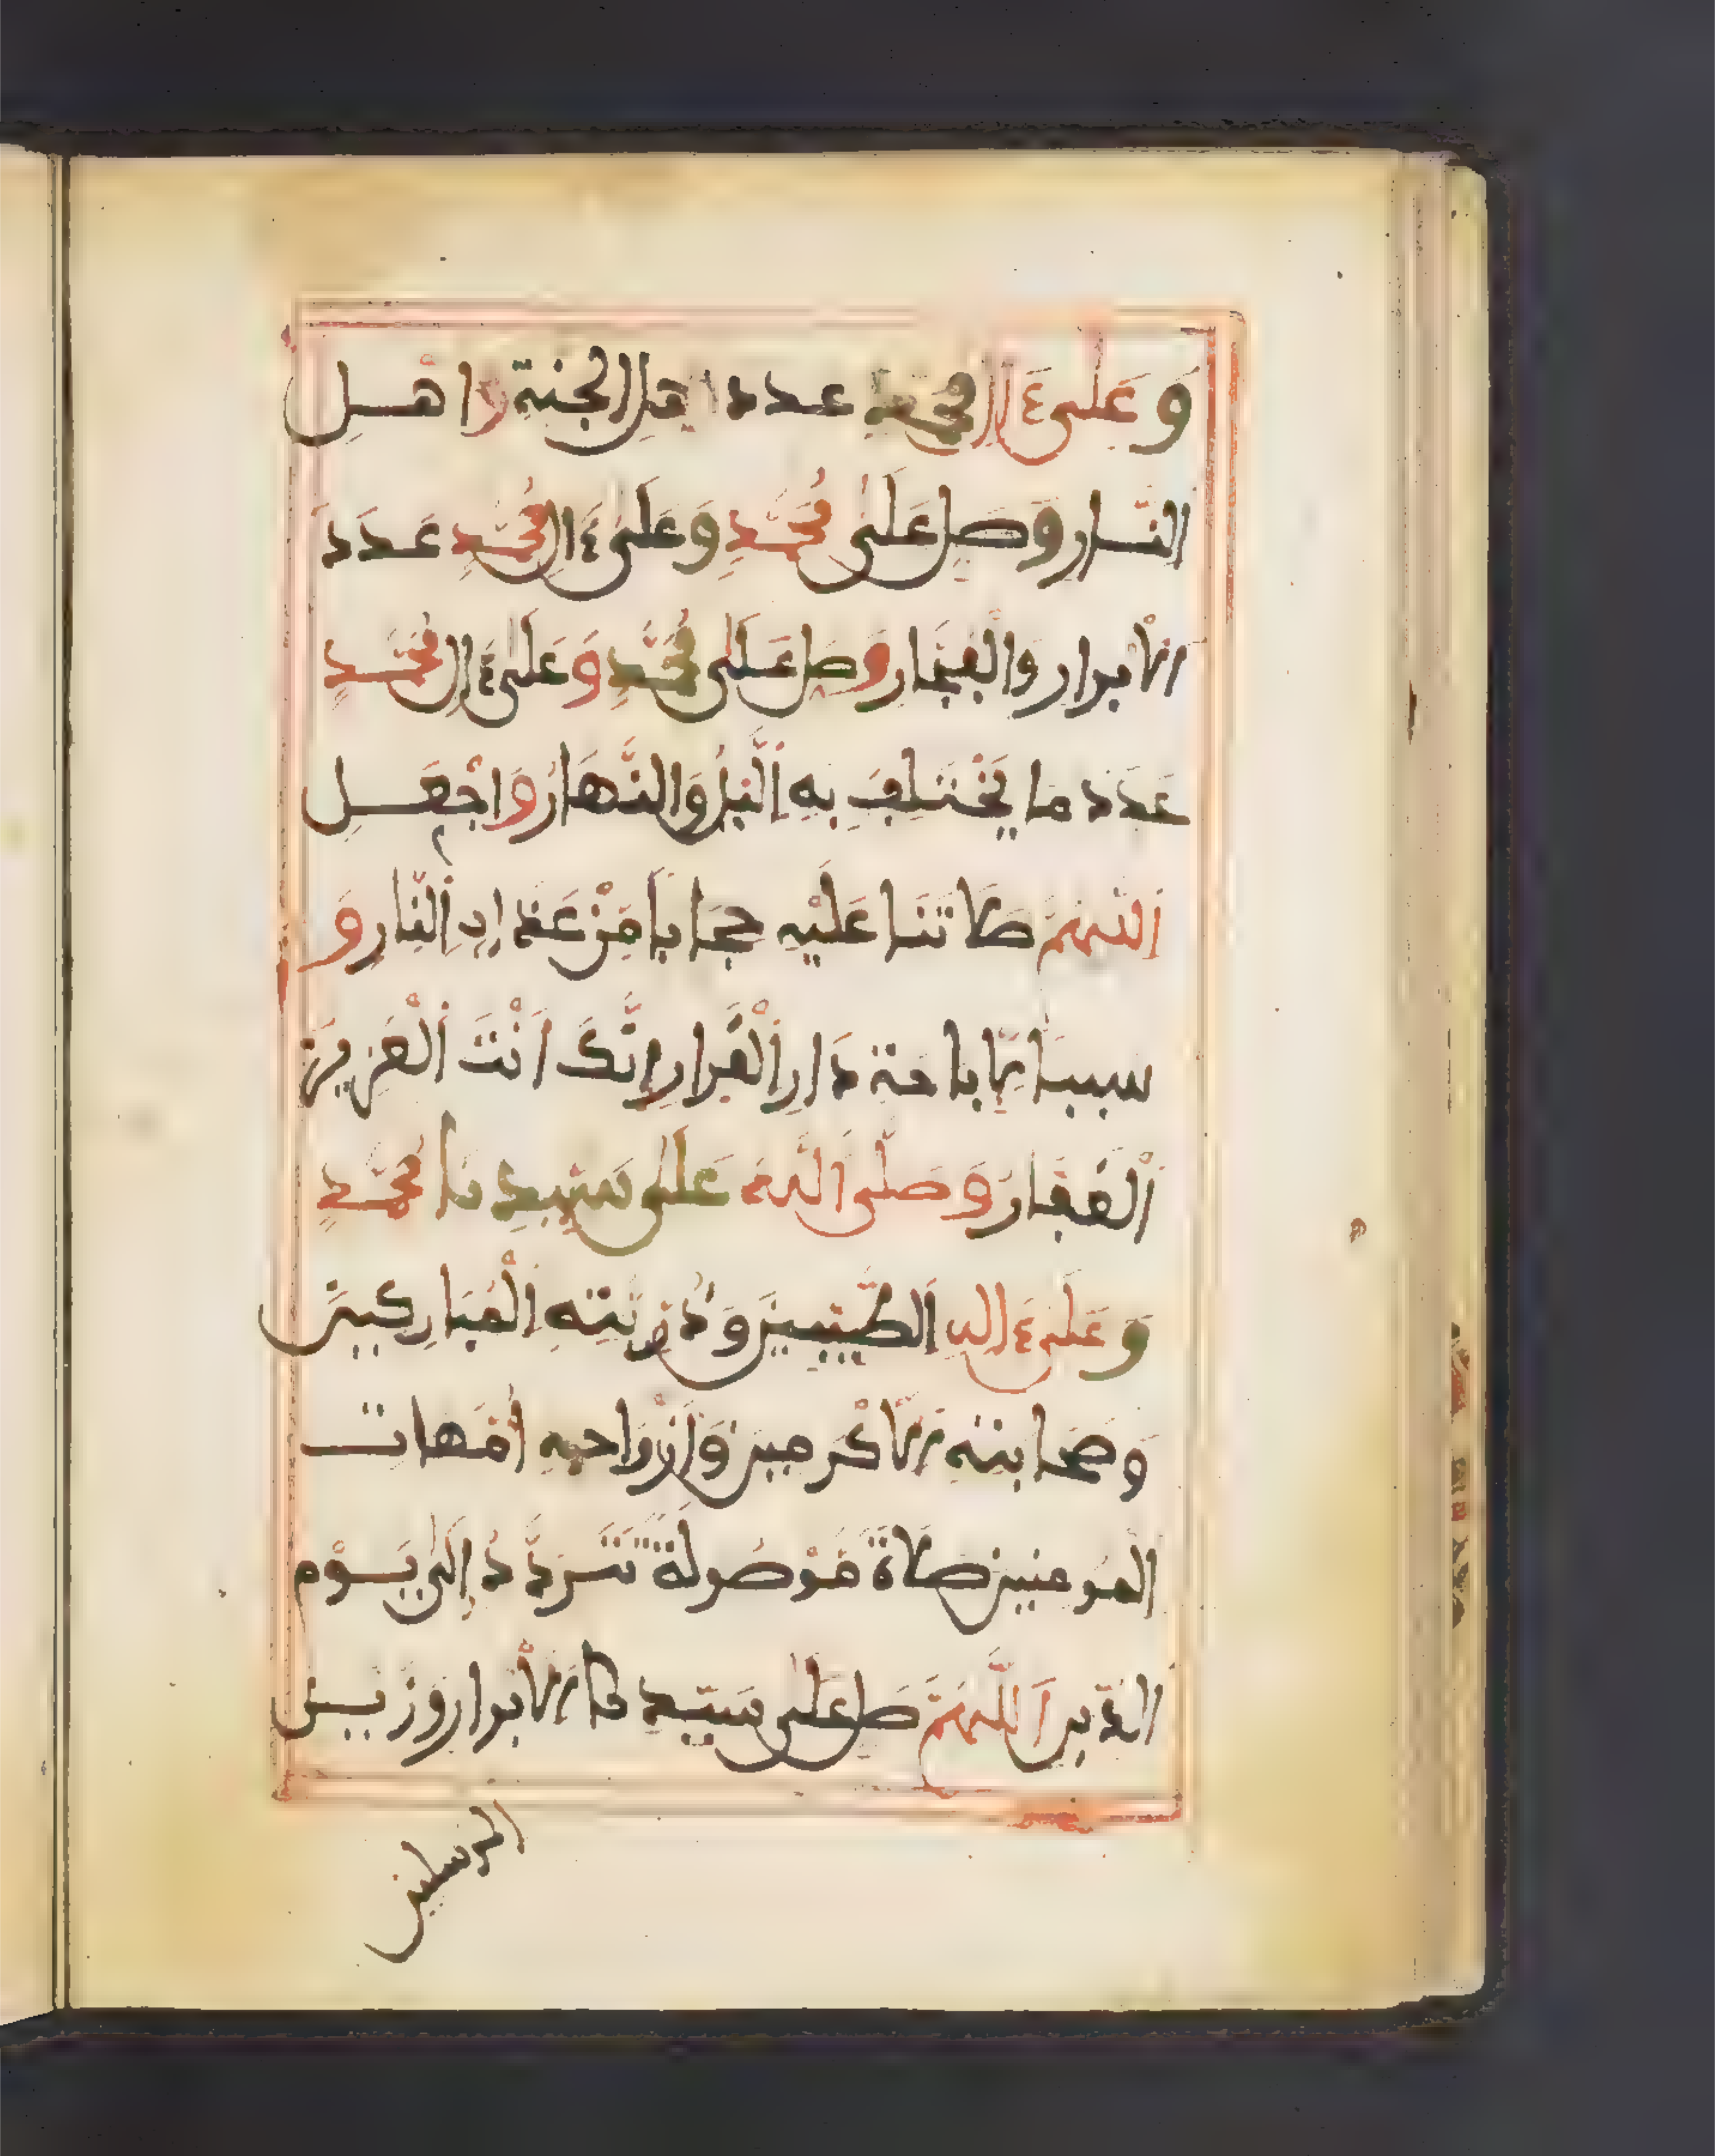 وَعَلَى ءَالِ مُحَمَّدٍ عدد اهل الجنة واهــل
النّــار وَصَلِّ عَلَى مُحَمَّدٍ وَعَلَى ءَالِ مُحَمَّدٍ عَدَدَ
الأبرار والْفُجّار وَصَلِّ عَلَى مُحَمَّدٍ وَعَلَى ءَالِ مُحَمَّدٍ
عَدَدَ ما يَخْتَلِفُ بِهِ الَّيْلُ وَالنَّهَارُ وَاجْعَــل
اللَّهُمَّ صَلَاتَنَا عَلَيْهِ حِجَابًا مِّنْ عَذَابِ النَّارِ وَ
سببًا لِّاباحة دَارِ الْقَرارِ إِنَّكَ أَنْتَ الْعَزِيزُ
الْغَفّارُ وَصَلَّى اللَّهُ عَلَى سَيِّدِنَا مُحَمَّدٍ
وَعَلَى ءَالِهِ الطَّيِّبِينَ وَذُرِّيَّتِهِ الْمُبَارَكِينَ
وَصَحَابَتِهِ الْأَكْرَمِينَ وَأَزْوَاجِهِ أُمَّهَاتِ
المُومنين صَلَاةً مَّوْصُولَةً تَتَرَدَّدُ إِلَى يَــوْمِ
الدّين اللَّهُمَّ صَلِّ عَلَى سَيِّدِ الْأَبْرار وَزَيْــنِ
المرسلين